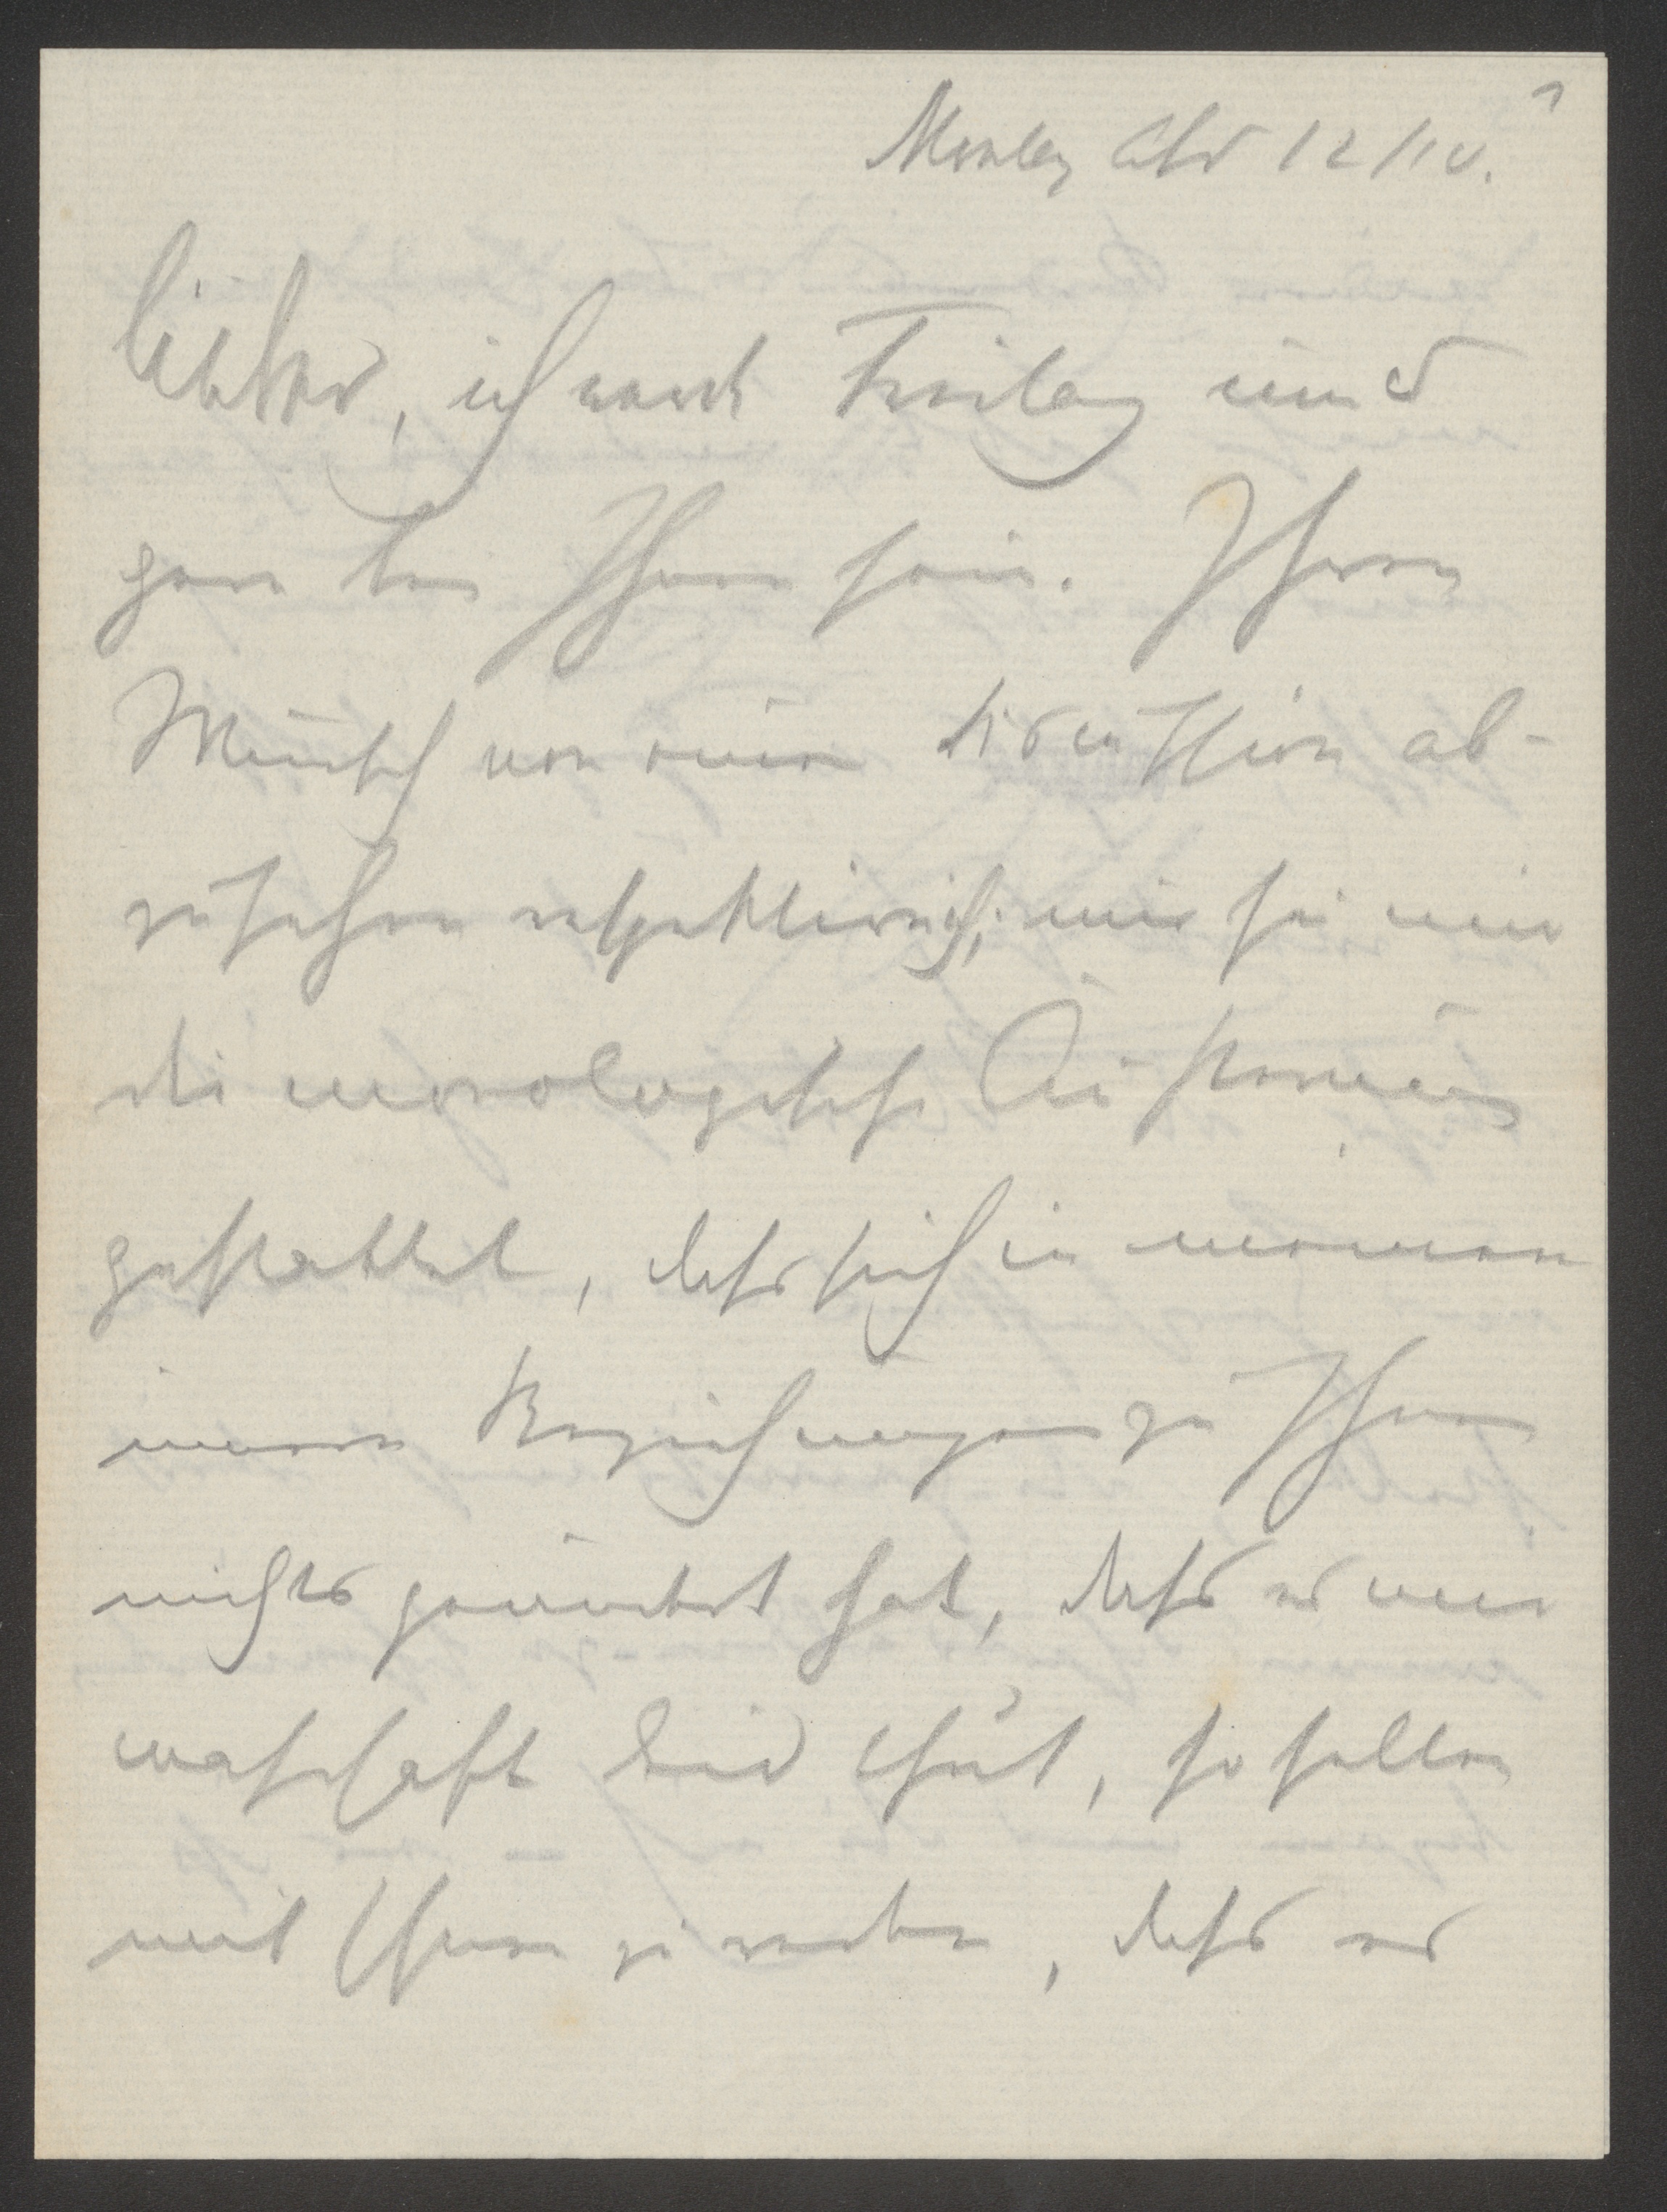 Montag Abd 12/IV.
Liebster, ich werde Freitag und
gern bei Ihnen sein. Ihren
Wunsch von einer Discussion ab-
zusehen respektire ich; mir sei nur
die monologische Äusserung
gestattet, dass sich in meinen
inneren Beziehungen zu Ihnen
nichts geändert hat, dass es mir
wahrhaft leid thut, so selten
mit Ihnen zu reden, dass es